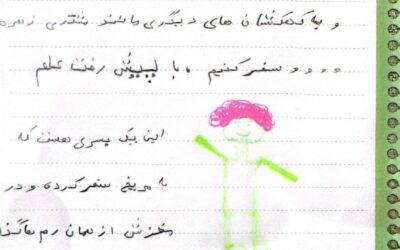 و به کهکشان های دیگری مانند مشتری زهره
و و و و سفر کنیم . با رفت علم
این یک پسری هست که
به مریخ سفر کرده و در
از همان رم ها